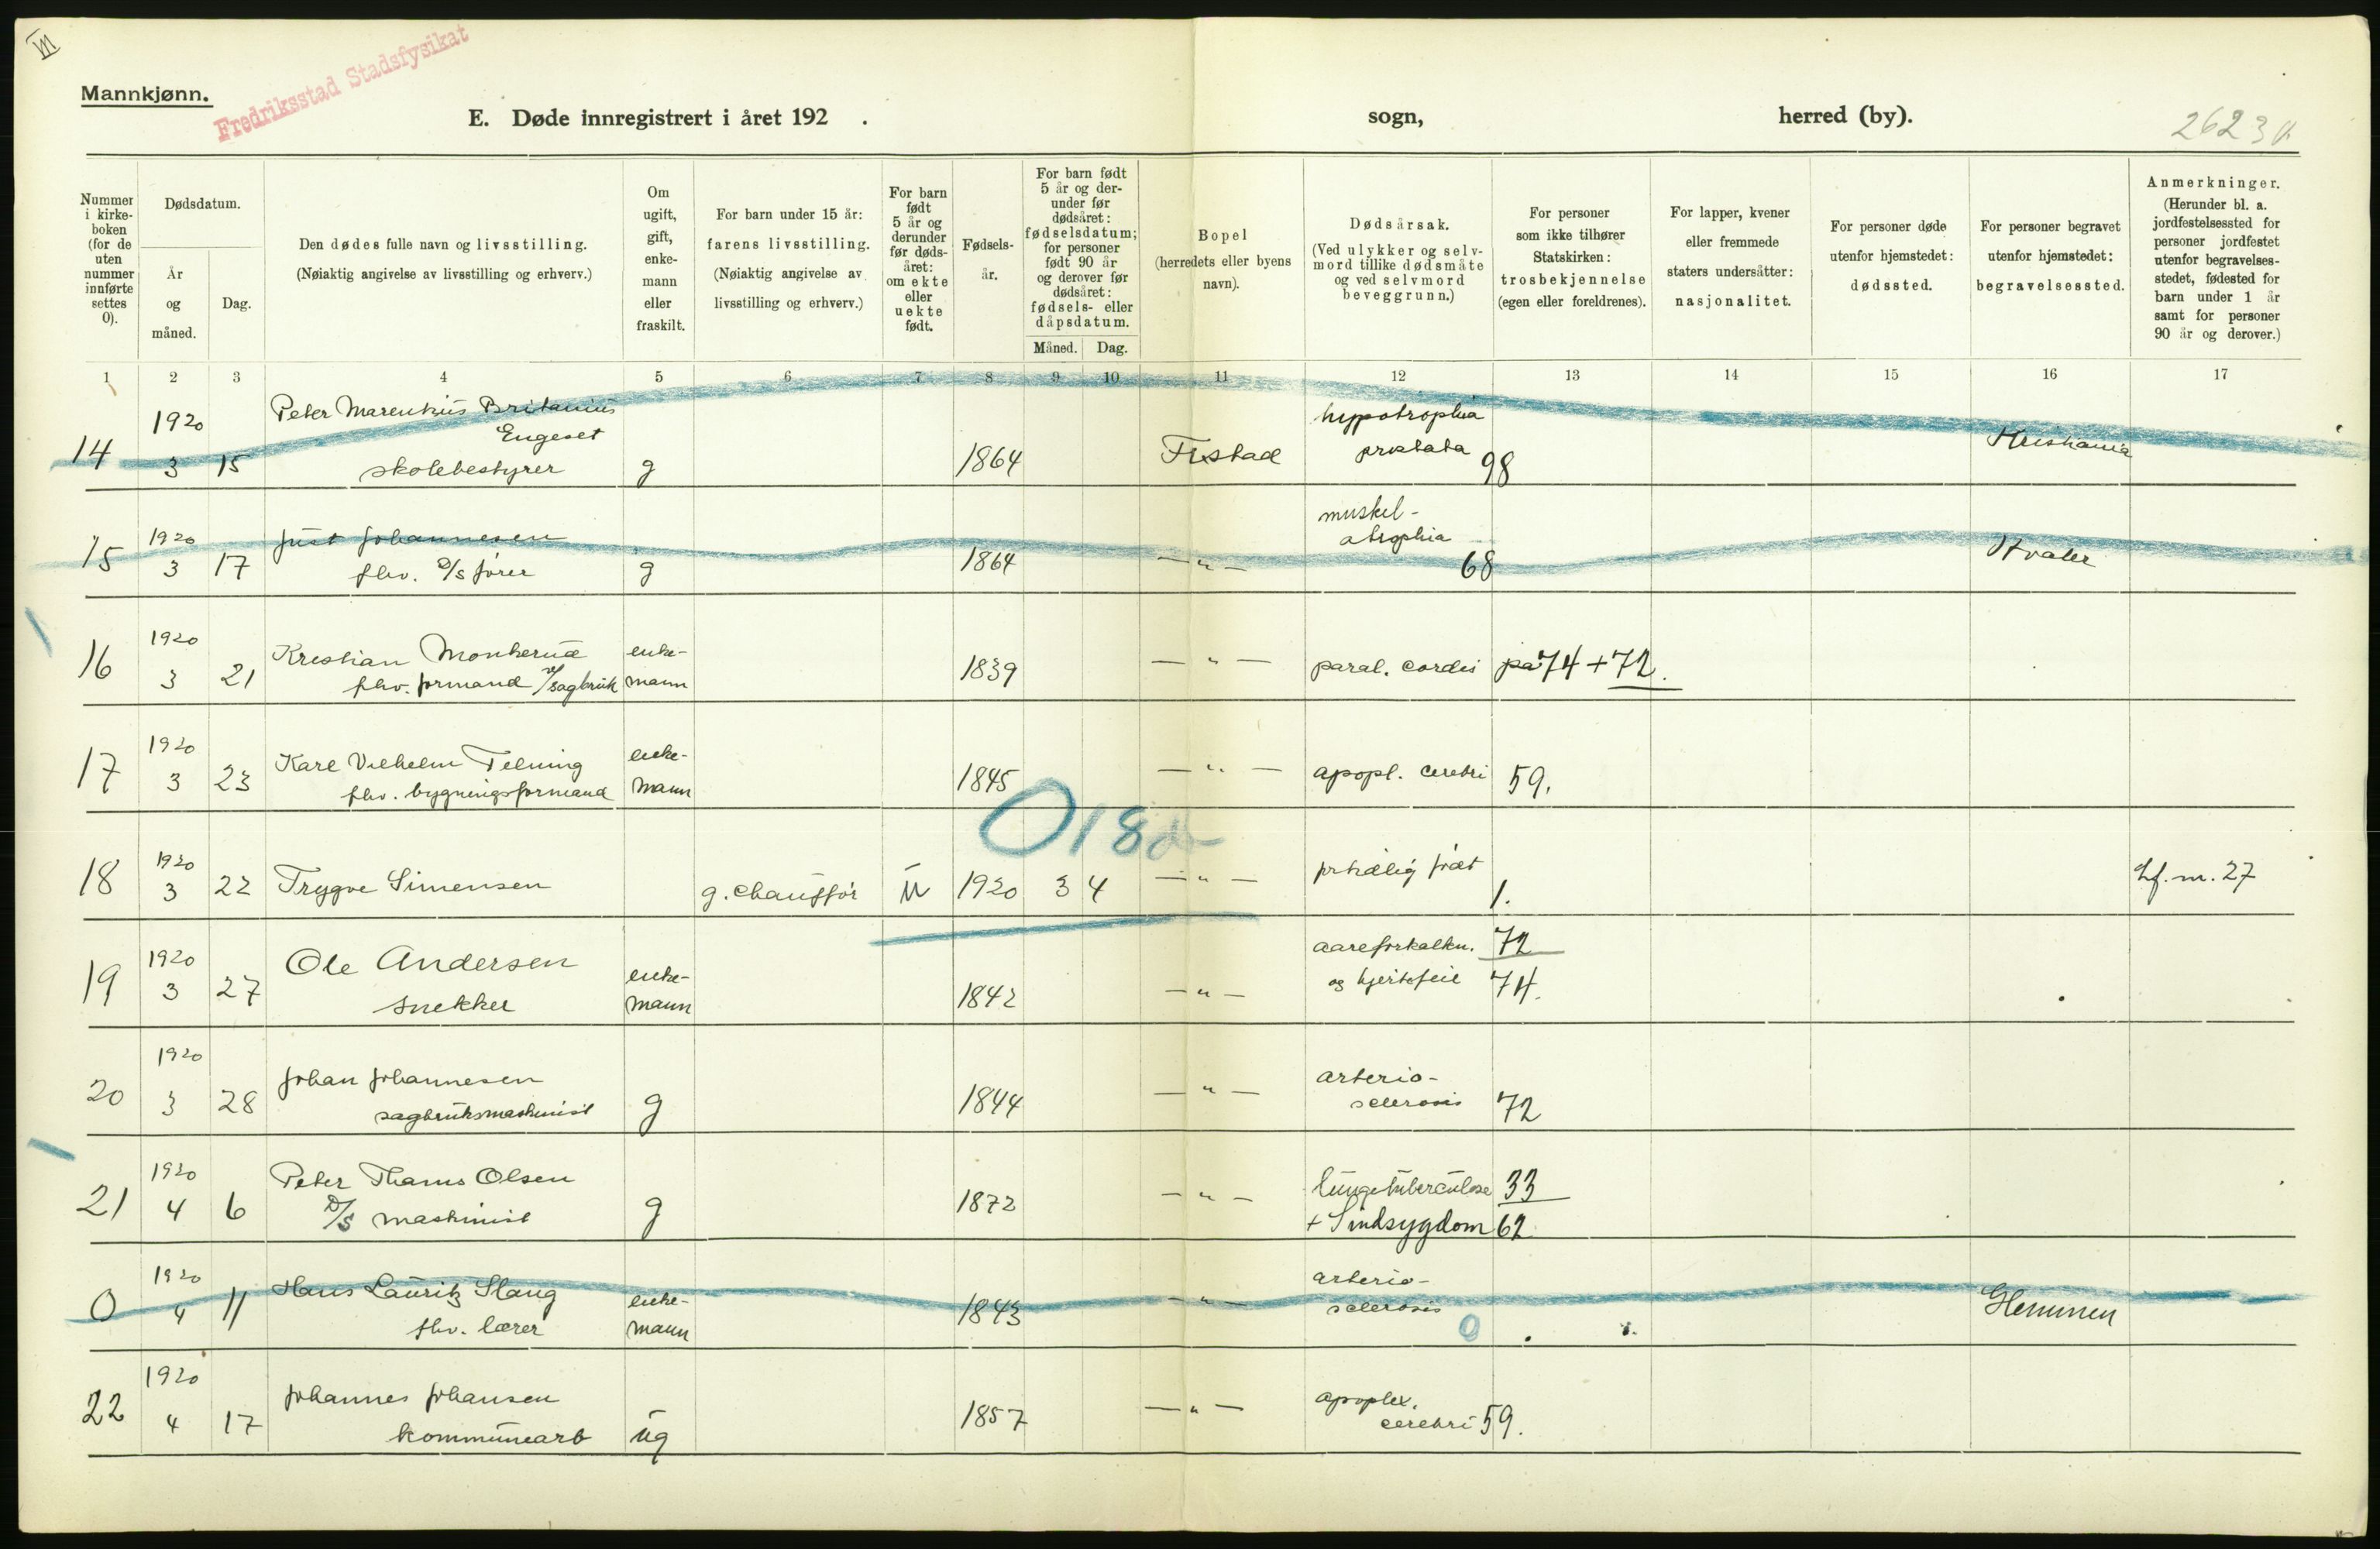 VII
Mannkjønn.
Fredriksstad Stadsfysikat
E. Døde innregistrert i året 192 .
sogn,
herred (by).
2623
Nummer i kirke-boken (for de uten nummer innførte settes 0).
Dødsdatum.
År og måned.
Dag.
Den dødes fulle navn og livsstilling.
(Nøiaktig angivelse av livsstilling og erhverv.)
Om ugift, gift, enke-mann eller fraskilt.
For barn under 15 år:
farens livsstilling.
(Nøiaktig angivelse av livsstilling og erhverv.)
For barn født 5 år og derunder før døds-året: om ekte eller uekte født.
Fødsels-år.
For barn født 5 år og der-under før dødsåret: fødselsdatum; for personer født 90 år og derover før dødsåret: fødsels- eller dåpsdatum.
Måned. Dag.
Bopel
(herredets eller byens navn).
Dødsårsak.
(Ved ulykker og selv-mord tillike dødsmåte og ved selvmord beveggrunn.)
For personer som ikke tilhører Statskirken: trosbekjennelse (egen eller foreldrenes).
For lapper, kvener eller fremmede staters undersåtter: nasjonalitet.
For personer døde utenfor hjemstedet: dødssted.
For personer begravet utenfor hjemstedet: begravelsessted.
Anmerkninger.
(Herunder bl. a. jordfestelsessted for personer jordfestet utenfor begravelses-stedet, fødested for barn under 1 år samt for personer 90 år og derover.)
1 2 3 4 5 6 7 8 9 10 11 12 13 14 15 16 17
14 1920 3 15 Peter Marenkius Britanius Engeset
skolebestyrer g 1864 Frstad hypotrophia prostata 98 Kristiania
15 1920 3 17 Just Johannesen
fhv. D/S fører g 1864 — " — muskel-atrophia 68 Hvaler
16 1920 3 21 Kristian Monkerud
fhv. formand v/sagbruk enke-mann 1839 — " — paral. cordis på 74 + 72.
17 1920 3 23 Karl Vilhelm Telning
fhv. bygningsformand enke-mann 1845 — " — apopl. cerebri 59.
018
18 1920 3 22 Trygve Simensen g. chauffør u 1920 3 4 — " — fortidlig født 1. Lf. m. 27
19 1920 3 27 Ole Andersen
snekker enke-mann 1842 — " — aareforkalkn. 72
og hjertefeil 74.
20 1920 3 28 Johan Johannesen
sagbruksmaskinist g 1844 — " — arterio-sclerosis 72
21 1920 4 6 Peter Thams Olsen
D/S maskinist g 1872 — " — lungetuberculose 33
+ Sindsygdom 62
0 1920 4 11 Hans Lauritz Slang
fhv. lærer enke-mann 1843 — " — arterio-sclerosis 0 Glemmen
22 1920 4 17 Johannes Johansen
kommunearb ug 1857 — " — apoplex. cerebri 59.